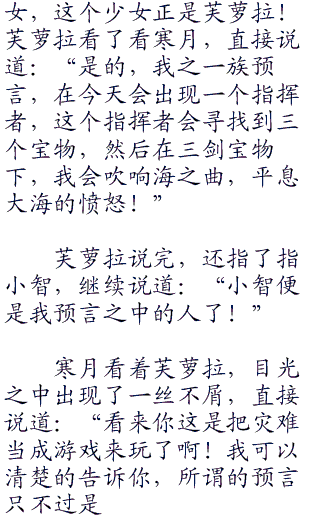 女，这个少女正是芙萝拉！
芙萝拉看了看寒月，直接说
道：“是的，我之一族预
言，在今天会出现一个指挥
者，这个指挥者会寻找到三
个宝物，然后在三剑宝物
下，我会吹响海之曲，平息
大海的愤怒！”
芙萝拉说完，还指了指
小智，继续说道：“小智便
是我预言之中的人了！”
寒月看着芙萝拉，目光
之中出现了一丝不屑，直接
说道：“看来你这是把灾难
当成游戏来玩了啊！我可以
清楚的告诉你，所谓的预言
只不过是